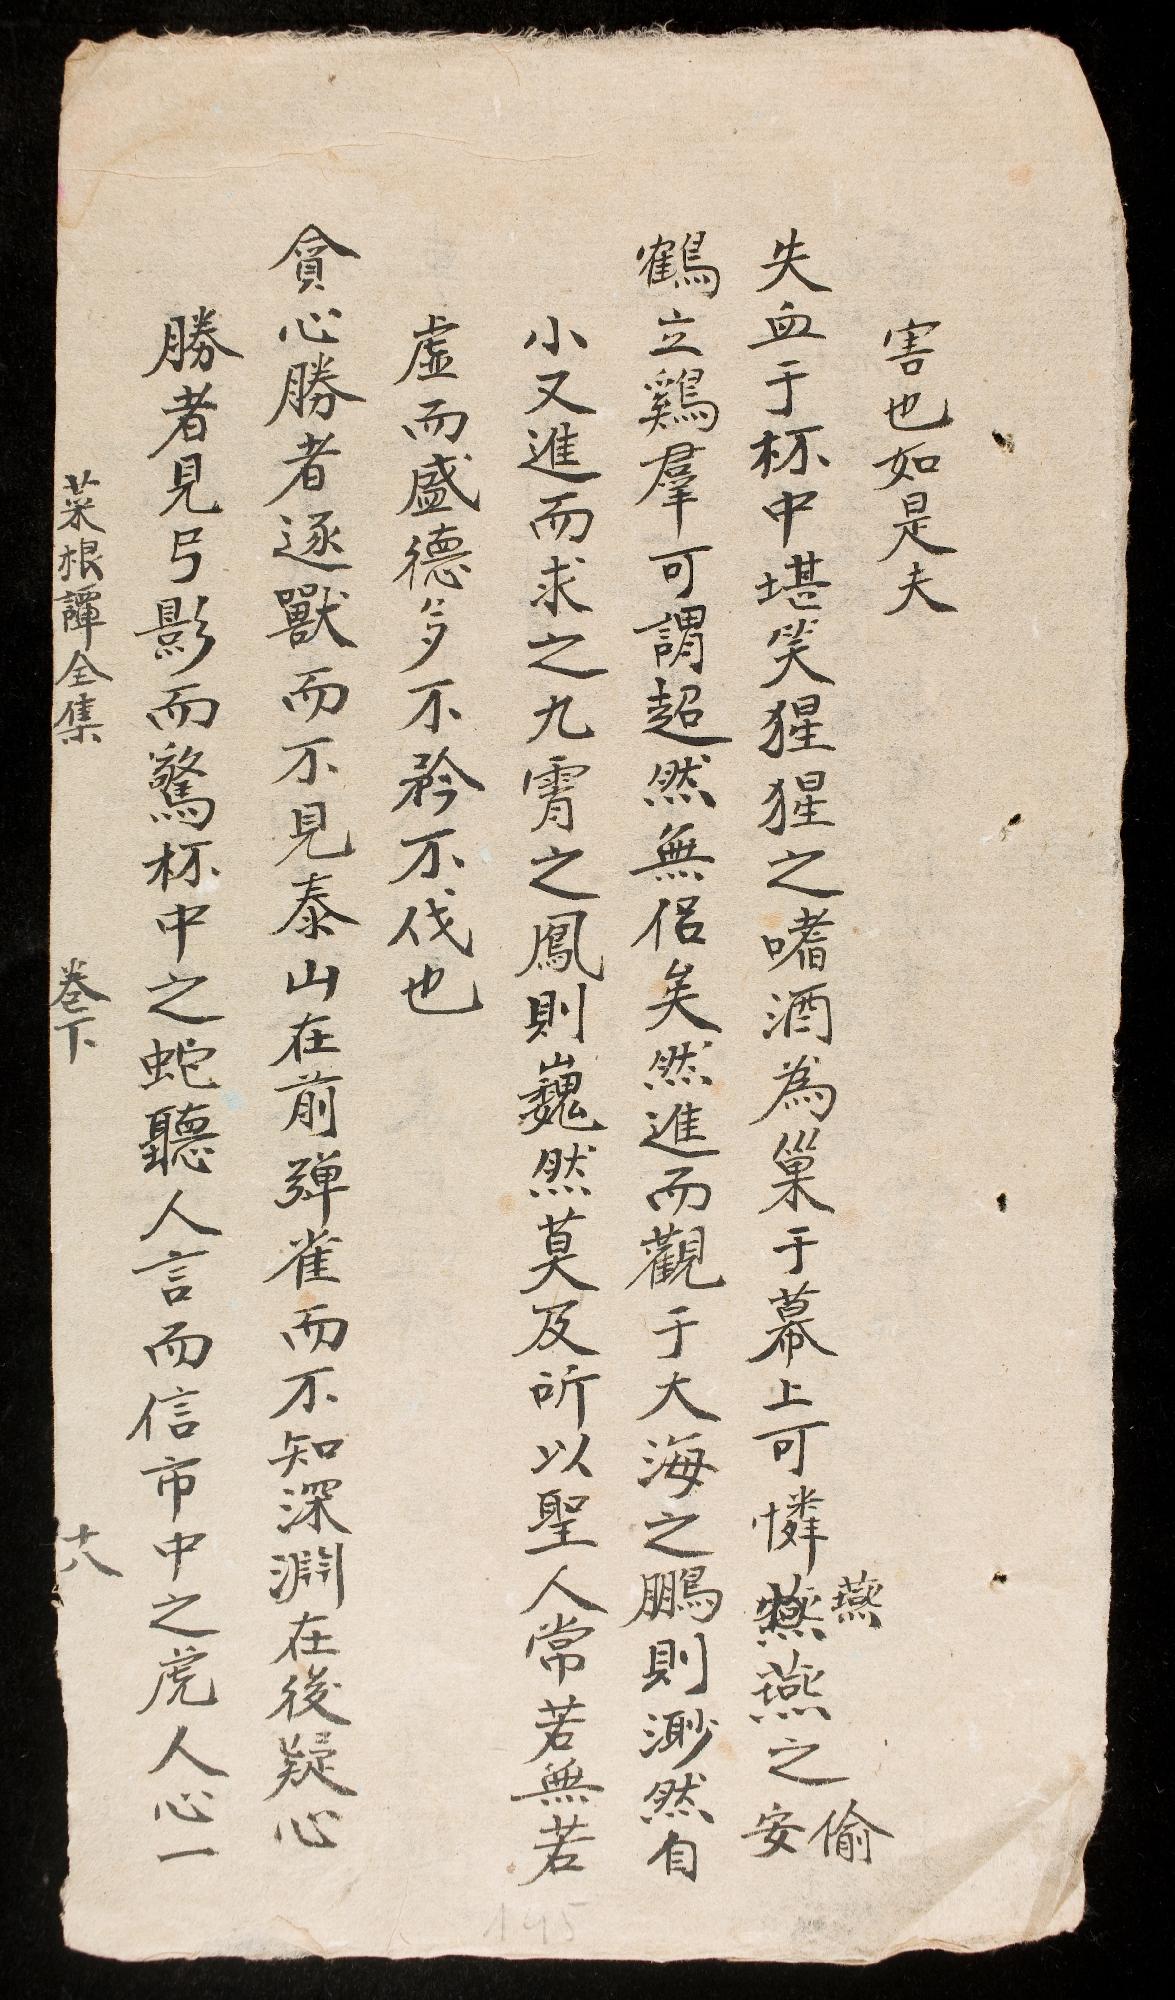 害也如是夫
失血于杯中堪笑猩猩之嗜酒為巢于幕上可憐燕燕之偷安
鶴立鷄羣可謂超然無侶矣然進而觀于大海之鵬則渺然自
小又進而求之九霄之鳳則巍然莫及所以聖人常若無若
虛而盛德多不矜不伐也
貪心勝者逐獸而不見泰山在前彈雀而不知深淵在後疑心
勝者見弓影而驚杯中之蛇聽人言而信市中之虎人心一
菜根譚全集 卷下 十八
145